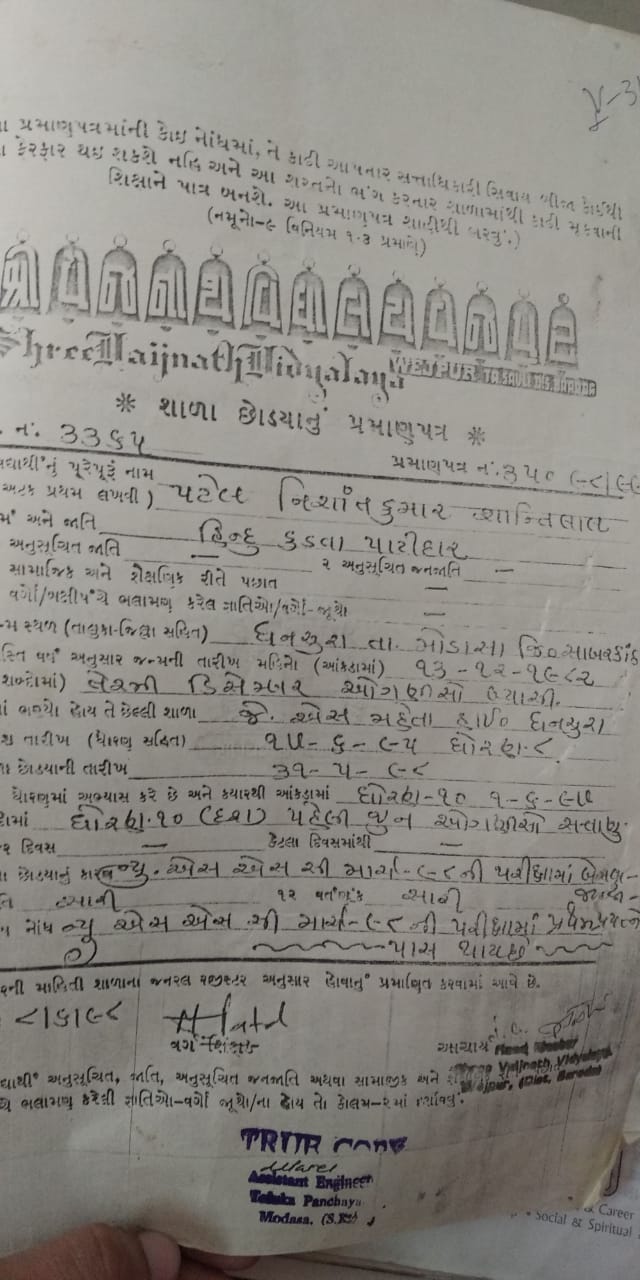 પ્રમાણપત્રમાંની કોઇ નોંધમાં, તે કાઢી આપનાર સત્તાધિકારી સિવાય બીજા કોઈથી
ફેરફાર થઇ શકશે નહિ અને આ શરતનો ભંગ કરનાર શાળામાંથી કાઢી મૂકવાની
શિક્ષાને પાત્ર બનશે. આ પ્રમાણપત્ર શાહીથી ભરવું.)
(નમૂનો-૯ વિનિયમ ૧૦૩ પ્રમાણે)
શ્રી વૈજનાથ વિદ્યાલય વેજપુર
Shree Vaijnath Vidyalaya WEJPUR TA SAVLI DIS BARODA
* શાળા છોડયાનું પ્રમાણપત્ર *
નં. ૩૩૬૫
પ્રમાણપત્ર નં. ૩૫૦
નું પૂરેપૂરું નામ
અટક પ્રથમ લખવી) પટેલ નિશાંતકુમાર શાન્તિલાલ
અને જાતિ હિન્દુ કડવા પાટીદાર
અનુસૂચિત જાતિ — ૨ અનુસૂચિત જનજાતિ —
સામાજિક અને શૈક્ષણિક રીતે પછાત
વર્ગો/બક્ષીપંચે ભલામણ કરેલ જ્ઞાતિઓ/વર્ગો-જૂથો —
સ્થળ (તાલુકા-જિલ્લા સહિત) ધનસુરા તા. મોડાસા જિ૦ સાબરકાંઠા
અનુસાર જન્મની તારીખ મહિનો (આંકડામાં) ૧૩-૧૨-૧૯૮૨
શબ્દોમાં) તેરમી ડિસેમ્બર ઓગણીસો બ્યાસી.
ભણ્યો હોય તે છેલ્લી શાળા જે. એસ મહેતા હાઈ૦ ધનસુરા
તારીખ (ધોરણ સહિત) ૧૫-૬-૯૫ ધોરણ-૮
છોડયાની તારીખ ૩૧-૫-૯૮
ધોરણમાં અભ્યાસ કરે છે અને કયારથી આંકડામાં ધોરણ-૧૦ ૧-૬-૯૭
ધોરણ.૧૦ (દશ) પહેલી જુન ઓગણીસો સત્તાણુ
દિવસ — કેટલા દિવસમાંથી —
છોડયાનું કારણ ન્યુ. એસ એસ સી માર્ચ-૯૮ની પરીક્ષામાં
સારી ૧૨ વર્તણૂંક સારી
નોંધ ન્યુ એસ એસ સી માર્ચ-૯૮ ની પરીક્ષામાં પ્રથમ પ્રયત્ને
પાસ થાય છે
માહિતી શાળાના જનરલ રજીસ્ટર અનુસાર હોવાનું પ્રમાણિત કરવામાં આવે છે.
૮/૬/૯૮
વર્ગ શિક્ષક
આચાર્ય Head Master
Shree Vaijnath Vidyalaya
Wejpur, (Dist. Baroda)
અનુસૂચિત, જાતિ, અનુસૂચિત જનજાતિ અથવા સામાજીક અને
ભલામણ કરેલી જ્ઞાતિઓ-વર્ગો જૂથો/ના હોય તો કોલમ-૨માં દર્શાવવું.
TRUE COPY
Assistant Engineer
Taluka Panchaya
Modasa. (S.K.)
& Career
Social & Spiritual